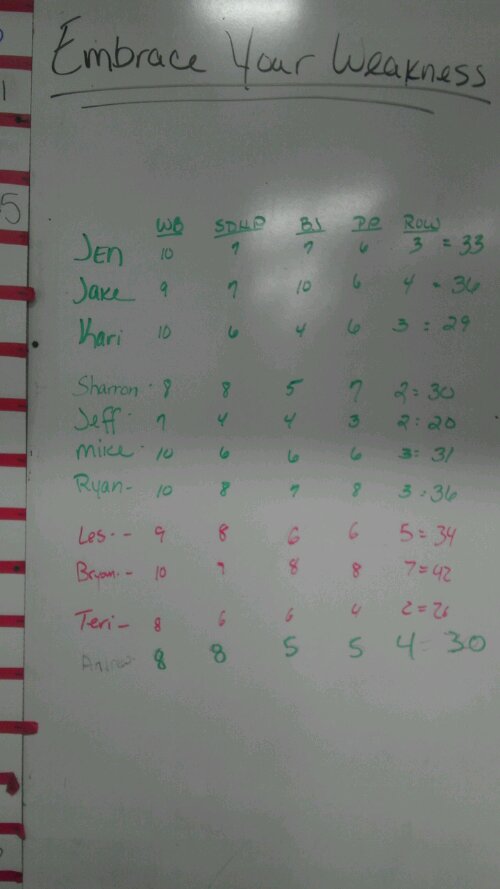 Embrace Your Weakness
WB SDHP BJ PP ROW
JEN 10 7 7 6 3 = 33
Jake 9 7 10 6 4 = 36
Kari 10 6 4 6 3 = 29
Sharron - 8 8 5 7 2 = 30
Jeff - 7 4 4 3 2 = 20
Mike - 10 6 6 6 3 = 31
Ryan - 10 8 7 8 3 = 36
Les - - 9 8 6 6 5 = 34
Bryan - - 10 9 8 8 7 = 42
Teri - 8 6 6 4 2 = 26
8 8 5 5 4 = 30